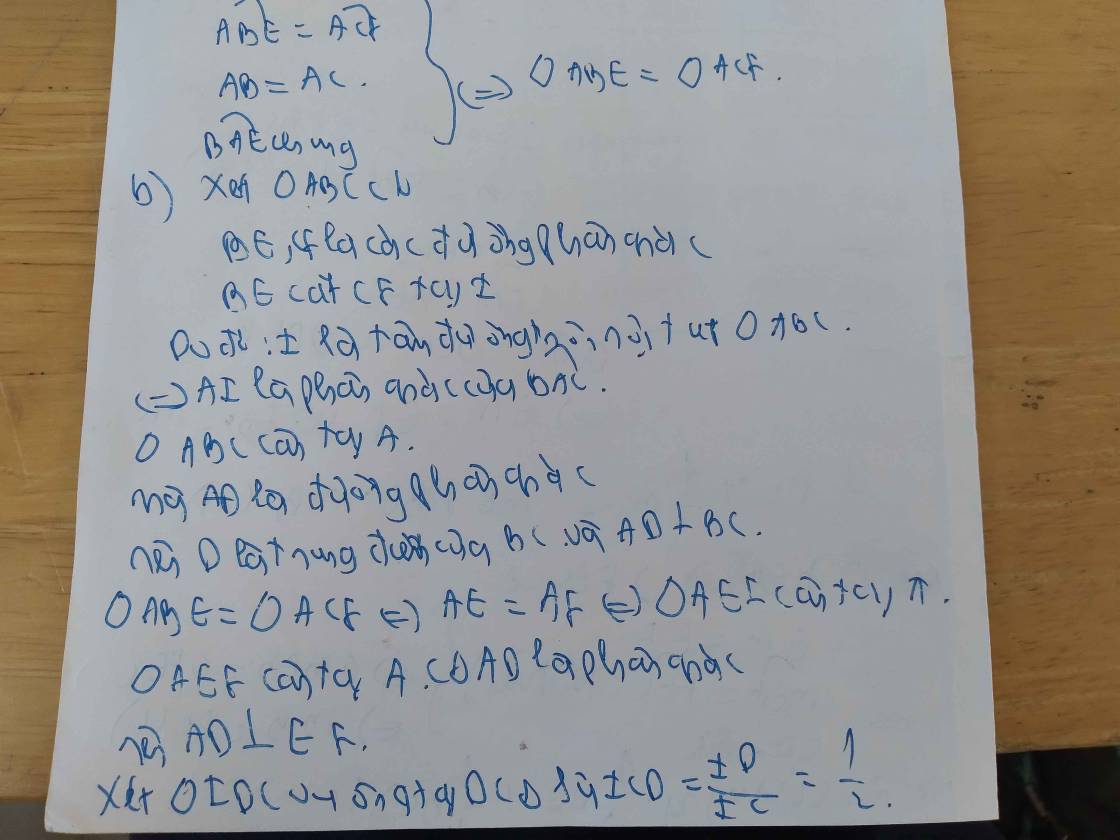 ABE = ACF
AB = AC.
BAE chung
⇔ △ABE = △ACF.
b) Xét △ABC có
BE, CF là các đường phân giác
BE cắt CF tại I
Do đó: I là tâm đường tròn nội tiếp △ABC.
⇔ AI là phân giác của BAC.
△ABC cân tại A.
mà AD là đường phân giác
nên D là trung điểm của BC và AD ⊥ BC.
△ABE = △ACF ⇔ AE = AF ⇔ △AEF cân tại A.
△AEF cân tại A. Có AD là phân giác
nên AD ⊥ EF.
Xét △IDC vuông tại D có sin ICD = ID/IC = 1/2.